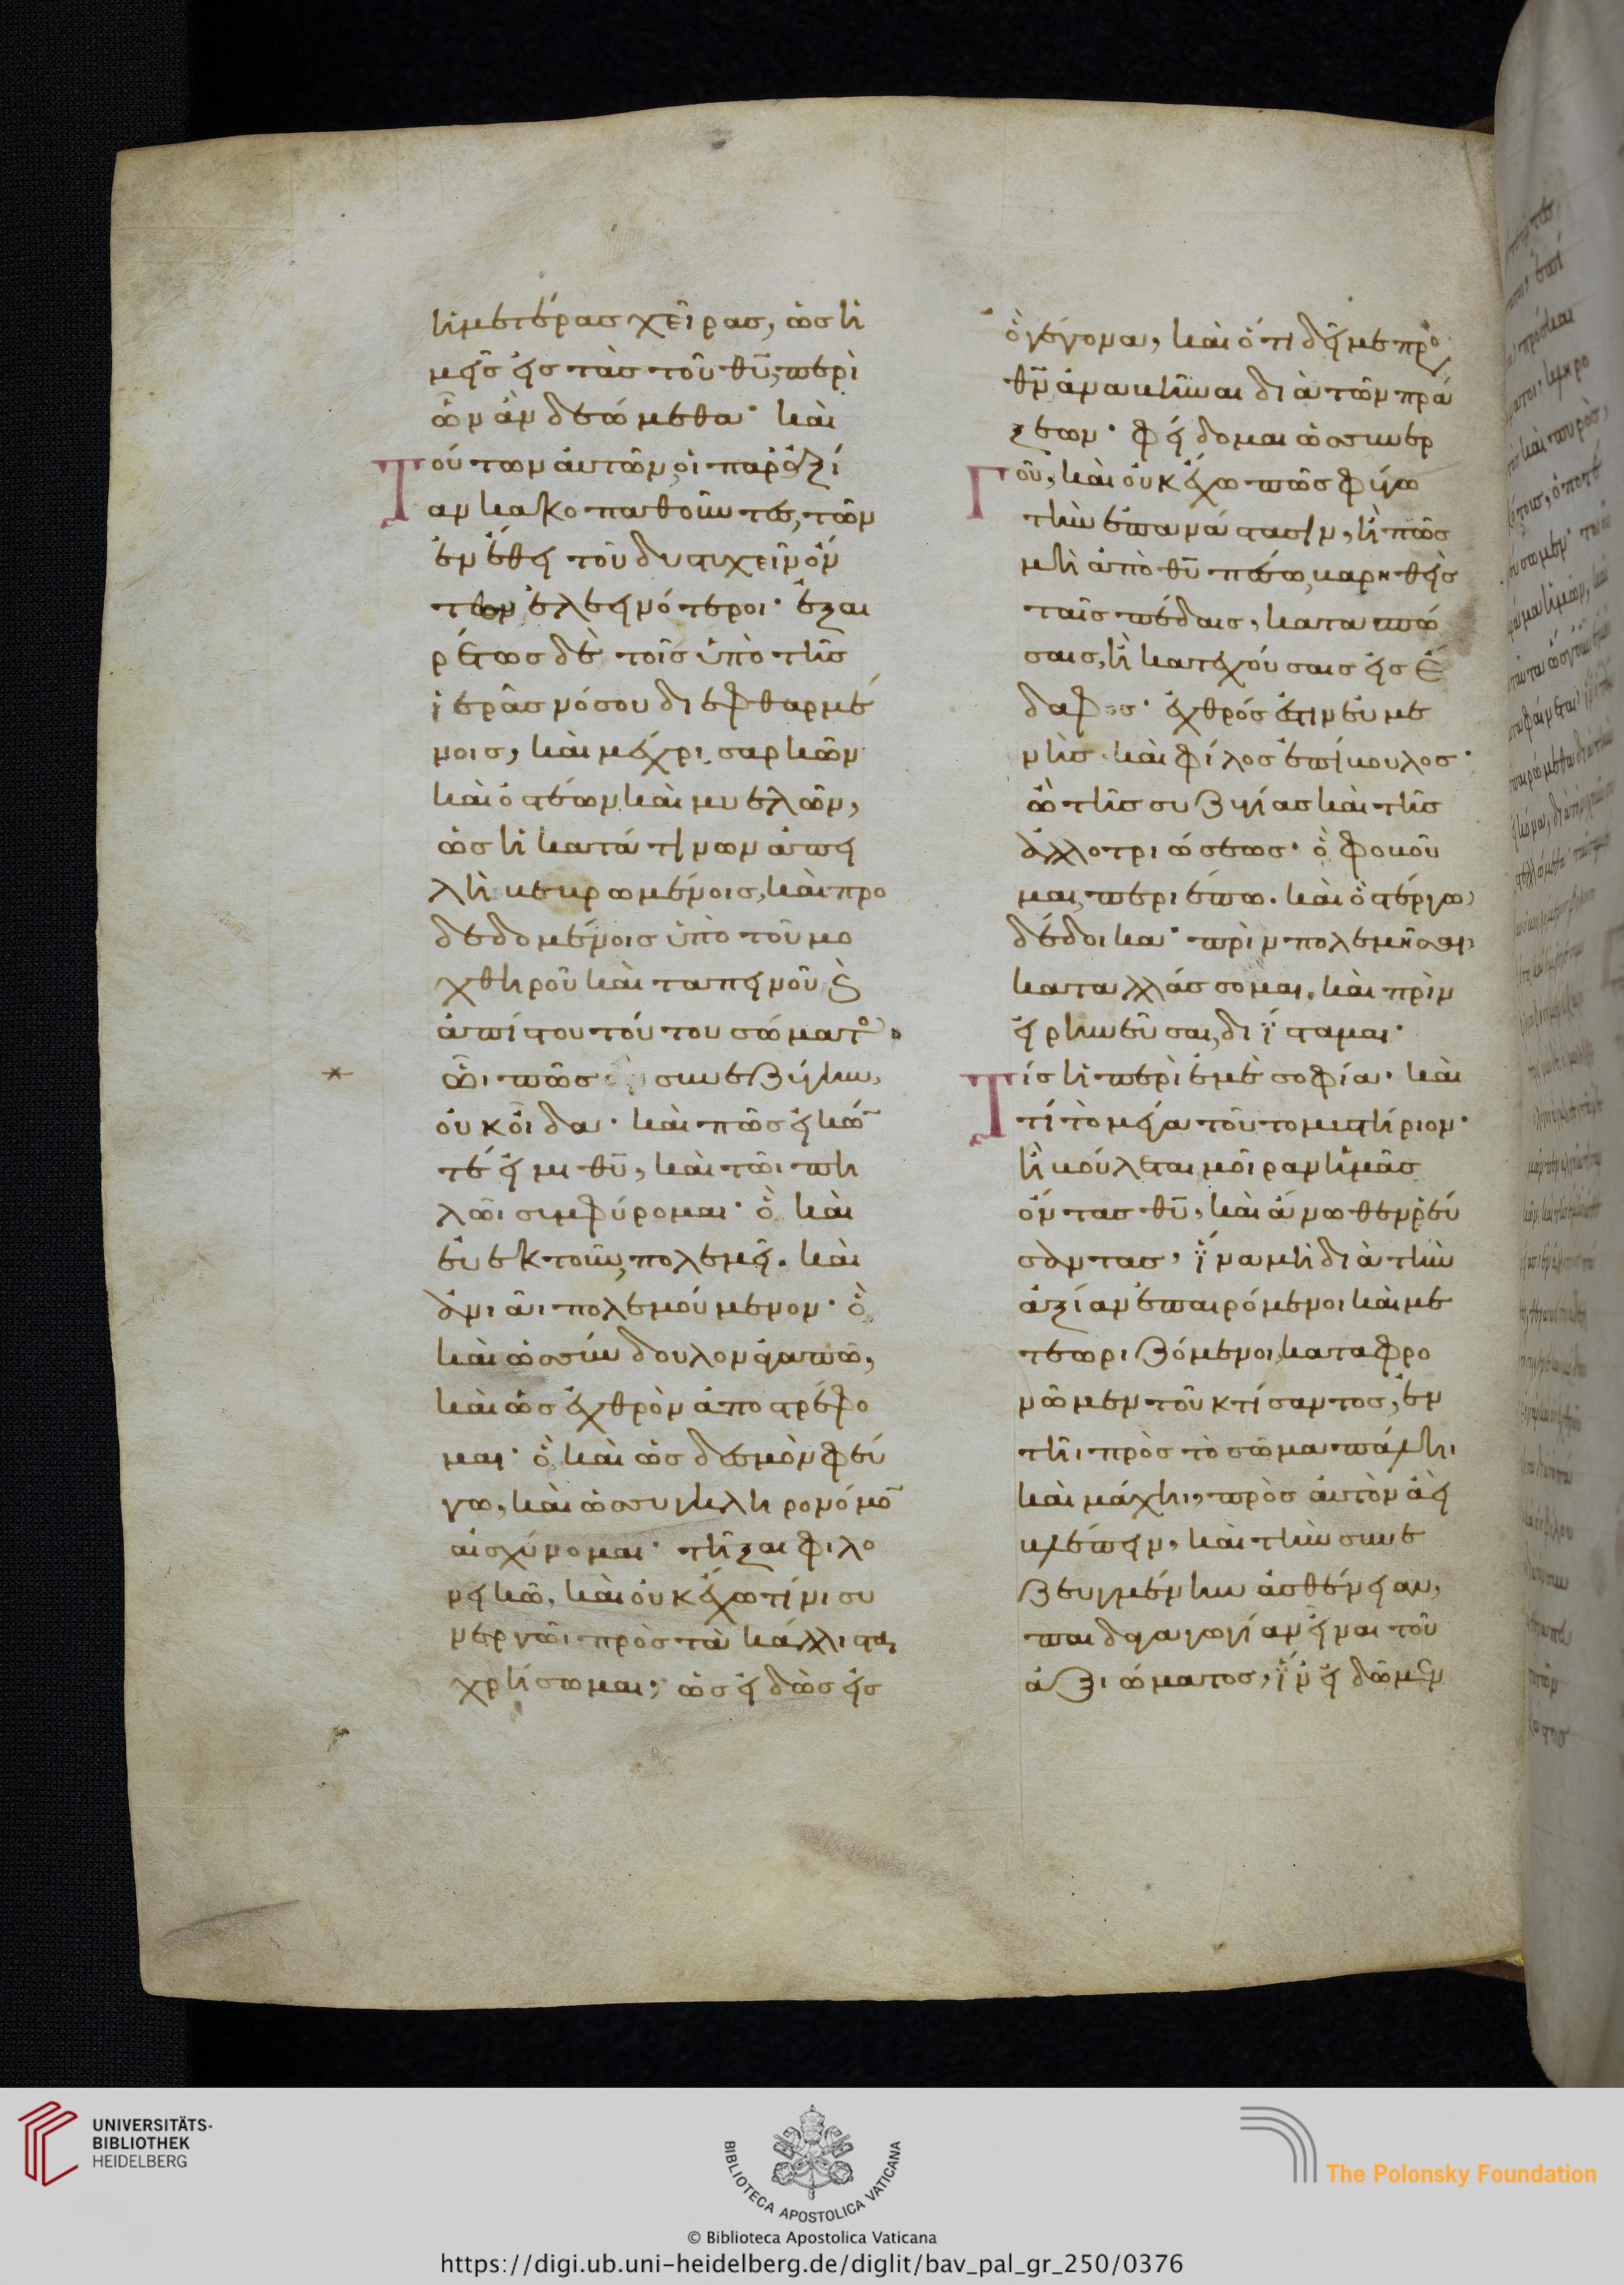 ἡμετέρας χεῖρας, ὡς ἡ
μεῖς εἰς τὰς τοῦ θῡ, περὶ
ὧν ἂν δεώμεθα· καὶ
Τούτων αὐτῶν, οἱ παρ' ἀξί
αν κακοπαθοῦντες, τῶν
ἐν ἔθει τοῦ δυστυχεῖν ὄν
των ἐλεεινότεροι· ἐξαι
ρέτως δὲ τοῖς ὑπὸ τῆς
ἱερᾶς νόσου διεφθαρμέ
νοις, καὶ μέχρι σαρκῶν
καὶ ὀστέων καὶ μυελῶν,
ὡς ἡ κατά τινων ἀπει
λὴ κεκρωμένοις, καὶ προ
δεδομένοις ὑπὸ τοῦ μο
χθηροῦ καὶ ταπεινοῦ ϗ
ἀπίστου τούτου σώματο
ὧι πῶς συνεζύγην,
οὐκ οἶδα· καὶ πῶς εἰκώ
τέ εἰμι θῡ, καὶ τῶι πη
λῶι συμφύρομαι· ὃ καὶ
εὐεκτοῦν, πολεμεῖ. καὶ
ἀνιᾶι πολεμούμενον· ὃ
καὶ ὡς σύνδουλον ἀγαπῶ,
καὶ ὡς ἐχθρὸν ἀποστρέφο
μαι· ὃ καὶ ὡς δεσμὸν φεύ
γω, καὶ ὡς συγκληρονόμο̄
αἰσχύνομαι· τῆξαι φιλο
νεικῶ, καὶ οὐκ ἔχω τίνι συ
νεργῶι πρὸς τὰ κάλλιστα
χρήσωμαι; ὡς εἰδὼς εἰς
ὃ γέγονα, καὶ ὅτι δεῖ με πρὸ
θῡ ἀναβῆναι διὰ τῶν πρά
ξεων· φείδομαι ὡς συνερ
Γοῦ, καὶ οὐκ ἔχω πῶς φύγω
τὴν ἐπανάστασιν, ἢ πῶς
μὴ ἀπὸ θῡ πέσω, βαρηθεὶς
ταῖς πέδαις, κατασπώ
σαις, ἢ κατεχούσαις εἰς ἔ
δαφος· ἐχθρός ἐστιν εὐμε
νὴς καὶ φίλος ἐπίβουλος·
ὢ τῆς συζυγίας καὶ τῆς
ἀλλοτριώσεως· ὃ φοβοῦ
μαι, περιέπω. καὶ ὃ στέργω,
δέδοικα· πρὶν πολεμῆσαι,
καταλλάσσομαι, καὶ πρὶν
εἰρηνεῦσαι, διΐσταμαι·
Τίς ἡ περὶ ἐμὲ σοφία· καὶ
τί τὸ μέγα τοῦτο μυστήριον·
ἢ βούλεται μοῖραν ἡμᾶς
ὄντας θῡ, καὶ ἄνωθεν ῥεύ
σαντας, ἵνα μὴ διὰ τὴν
ἀξίαν ἐπαιρόμενοι καὶ με
τεωριζόμενοι, καταφρο
νῶμεν τοῦ κτίσαντος, ἐν
τῆι πρὸς τὸ σῶμα πάληι
καὶ μάχηι, πρὸς αὐτὸν ἀεὶ
βλέπειν, καὶ τὴν συνε
ζευγμένην ἀσθένειαν,
παιδαγωγίαν εἶναι τοῦ
ἀξιώματος, ἵν' εἰδῶμεν
UNIVERSITÄTS-
BIBLIOTHEK
HEIDELBERG
BIBLIOTECA APOSTOLICA VATICANA
The Polonsky Foundation
© Biblioteca Apostolica Vaticana
https://digi.ub.uni-heidelberg.de/diglit/bav_pal_gr_250/0376